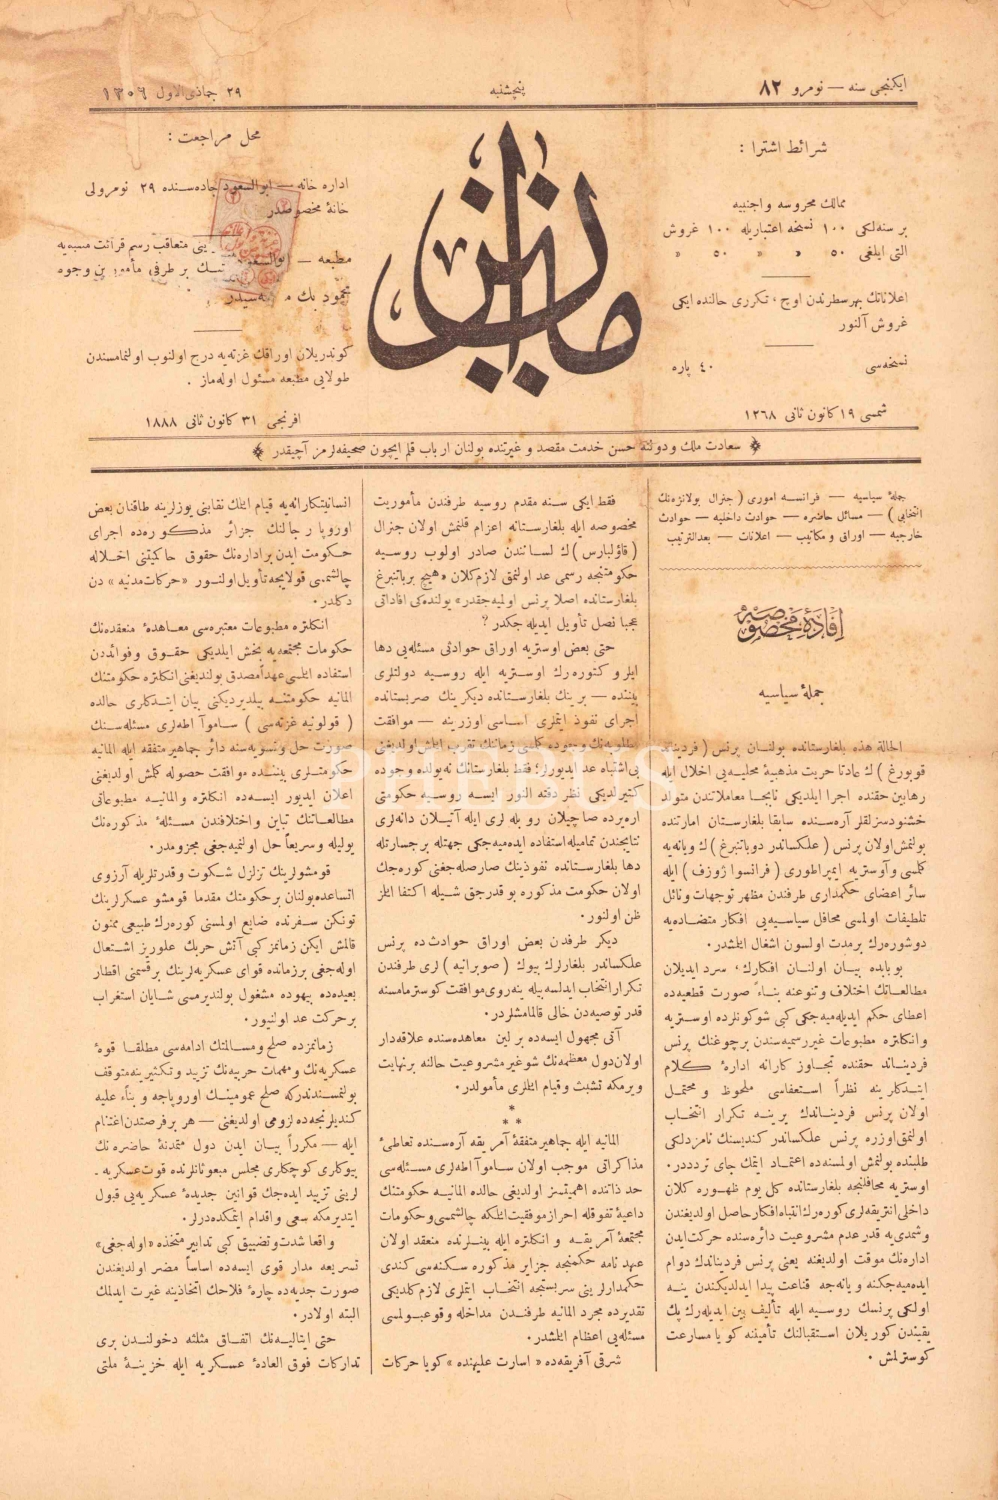 ایکنجی سنه — نومرو ٨٢
پنچشنبه
٢٩ جماذی الاول ١٣٠٦
شرائط اشترا :
ممالك محروسه و اجنبیه
بر سنه لکی ١٠٠ نسخه اعتباریله ١٠٠ غروش
التی ایلغی ٥٠ « « ٥٠ «
اعلاناتك بهر سطرندن اوچ ، تکرری حالنده ایکی
غروش آلنور
نسخه سی ٤٠ پاره
شمسی ١٩ كانون ثانی ١٢٦٨
میزان
محل مراجعت :
اداره خانه — ابوالسعود جاده سنده ٢٩ نومرولی
خانۀ مخصوصدر
مطبعه — ابوالسعود
محمود بك
کوندریلان اوراقك غزته یه درج اولنوب اولنمامسندن
طولایی مطبعه مسئول اوله ماز .
افرنجی ٣١ كانون ثانی ١٨٨٨
سعادت ملك و دولته حسن خدمت مقصد و غیرتنده بولنان ارباب قلم ایچون صحیفه لرمز آچیقدر
جملۀ سیاسیه — فرانسه اموری ( جنرال بولانژه نك
انتخابی ) — مسائل حاضره — حوادث داخلیه — حوادث
خارجیه — اوراق و مکاتیب — اعلانات — بعدالترتیب
افادۀ مخصوصه
جملۀ سیاسیه
الحالة هذه بلغارستانده بولنان پرنس ( فردیناند
قوبورغ ) ك عادتا حریت مذهبیۀ محلیه یی اخلال ایله
رهابین حقنده اجرا ایلدیکی نابجا معاملاتندن متولد
خشنودسزلقلر آره سنده سابقا بلغارستان امارتنده
بولنمش اولان پرنس ( علکساندر دوباتنبرغ ) ك ویانه یه
کلمسی و آوستریه ایمپراطوری ( فرانسوا ژوزف ) ایله
سائر اعضای حکمداری طرفندن مظهر توجهات و نائل
تلطیفات اولمسی محافل سیاسیه یی افکار متضاده یه
دوشوره رك بر مدت اولسون اشغال ایلمشدر.
بو بابده بیان اولنان افکارك ، سرد ایدیلان
مطالعاتك اختلاف و تنوعنه بناءً صورت قطعیه ده
اعطای حکم ایدیله میه جکی کبی شو کونلرده اوستریه
و انکلتره مطبوعات غیر رسمیه سندن بر چوغنك پرنس
فردیناند حقنده تجاوز کارانه ادارۀ کلام
ایتدکلرینه نظراً استعفاسی ملحوظ و محتمل
اولان پرنس فردیناندك یرینه تکرار انتخاب
اولنمق اوزره پرنس علکساندر کندیسنك نامزدلکی
طلبنده بولنمش اولمسنده اعتماد ایتمك جای ترددر.
اوستریه محافلنجه بلغارستانده کل یوم ظهوره کلان
داخلی انتریقه لری کوره رك انتباه افکار حاصل اولدیغندن
و شمدی یه قدر عدم مشروعیت دائره سنده حرکت ایدن
اداره نك موقت اولدیغنه یعنی پرنس فردیناندك دوام
ایده میه جکنه ویانه جه قناعت پیدا ایدلدیکندن ینه
اولکی پرنسك روسیه ایله تألیف بین ایدیله رك پك
یقیندن کوریلان استقبالنك تأمیننه کویا مسارعت
کوسترلمش .
فقط ایکی سنه مقدم روسیه طرفندن مأموریت
مخصوصه ایله بلغارستانه اعزام قلنمش اولان جنرال
( قاؤلبارس ) ك لسانندن صادر اولوب روسیه
حکومتنجه رسمی عد اولنمق لازم کلان « هیچ بر باتنبرغ
بلغارستانده اصلا پرنس اولمیه جقدر » یولنده کی افاداتی
عجبا نصل تأویل ایدیله جکدر ؟
حتی بعض اوستریه اوراق حوادثی مسئله یی دها
ایلرو کتوره رك اوستریه ایله روسیه دولتلری
بیننده — برینك بلغارستانده دیکرینك صربستانده
اجرای نفوذ ایتملری اساسی اوزرینه — موافقت
مطلوبه نك وجوده کلمسی زماننك تقرب ایلمش اولدیغنی
بی اشتباه عد ایدیورلر؛ فقط بلغارستانك نه یولده وجوده
کتیرلدیکی نظر دقته النور ایسه روسیه حکومتی
اره یرده صاچیلان روبله لری ایله آتیلان دانه لری
نتایجندن تمامیله استفاده ایده میه جکی جهتله بر جسارتله
دها بلغارستانده نفوذینك صارصله جغنی کوره جك
اولان حکومت مذکوره بو قدرجق شیله اکتفا ایلمز
ظن اولنور.
دیکر طرفدن بعض اوراق حوادث ده پرنس
علکساندر بلغارلرك بیوك ( صوبرانیه ) لری طرفندن
تکرار انتخاب ایدلسه بیله ینه روی موافقت کوسترمامسنه
قدر توصیه دن خالی قالمامشلردر.
آتی مجهول ایسه ده برلین معاهده سنده علاقه دار
اولان دول معظمه نك شو غیر مشروعیت حالنه بر نهایت
ویرمکه تشبث و قیام ایتملری مأمولدر.
*
* *
المانیه ایله جماهیر متفقۀ آمریقه آره سنده تعاطئ
مذاکراتی موجب اولان ساموآ اطه لری مسئله سی
حد ذاتنده اهمیتسز اولدیغی حالده المانیه حکومتنك
داعیۀ تفوقله احراز موفقیت ایتمکه چالشمسی و حکومات
مجتمعۀ آمریقه و انکلتره ایله بینلرنده منعقد اولان
عهدنامه حکمنجه جزایر مذکوره سکنه سی کندی
حکمدارلرینی سربستیجه انتخاب ایتملری لازم کلدیکی
تقدیرده مجرد المانیه طرفندن مداخله وقوعبولمسی
مسئله یی اعظام ایلمشدر.
شرقی آفریقه ده « اسارت علیهنده » کویا حرکات
انسانیتکارانه یه قیام ایتمك نقابنی یوزلرینه طاقنان بعض
اوروپا رجالنك جزائر مذکوره ده اجرای
حکومت ایدن بر اداره نك حقوق حاکمیتنی اخلاله
چالشمسی قولایجه تأویل اولنور « حرکات مدنیه » دن
دکلدر.
انکلتره مطبوعات معتبره سی معاهدۀ منعقده نك
حکومات مجتمعه یه بخش ایلدیکی حقوق و فوائددن
استفاده ایتمسی عهداً مصدق بولندیغنی انکلتره حکومتنك
المانیه حکومتنه بیلدیردیکنی بیان ایتدکلری حالده
( قولونیه غزته سی ) ساموآ اطه لری مسئله سنك
صورت حل و تسویه سنه دائر جماهیر متفقه ایله المانیه
حکومتلری بیننده موافقت حصوله کلمش اولدیغنی
اعلان ایدیور ایسه ده انکلتره و المانیه مطبوعاتی
مطالعاتنك تباین و اختلافندن مسئلۀ مذکوره نك
یولیله و سریعاً حل اولنمیه جغی مجزومدر.
قومشولرینك تزلزل شوکت و قدرتلریله آرزوی
اتساعده بولنان بر حکومتك مقدما قومشو عسکرلرینك
تونکن سفرنده ضایع اولمسنی کوره رك طبیعی ممنون
قالمش ایکن زمانمز کبی آتش حربك علوریز اشتعال
اوله جغی بر زمانده قوای عسکریه لرینك بر قسمنی اقطار
بعیده ده بیهوده مشغول بولندیرمسی شایان استغراب
بر حرکت عد اولنیور.
زمانمزده صلح و مسالمتك ادامه سی مطلقا قوۀ
عسکریه نك و مهمات حربیه نك تزیید و تکثیرینه متوقف
بولنمسندندرکه صلح عمومینك اوروپاجه و بناءً علیه
کندیلرنجه ده لزومی اولدیغنی — هر بر فرصتدن اغتنام
ایله — مکرراً بیان ایدن دول متمدنۀ حاضره نك
بیوکلری کوچکلری مجلس مبعوثانلرنده قوت عسکریه ـ
لرینی تزیید ایده جك قوانین جدیدۀ عسکریه یی قبول
ایتدیرمکه سعی و اقدام ایتمکده درلر.
واقعا شدت و تضییق کبی تدابیر متخذه « اوله جغی »
تسریعه مدار قوی ایسه ده اساساً مضر اولدیغندن
صورت جدیه ده چارۀ فلاحك اتخاذینه غیرت ایدلمك
البته اولادر.
حتی ایتالیه نك اتفاق مثلثه دخولندن بری
تدارکات فوق العادۀ عسکریه ایله خزینۀ ملتی
PHEBUS